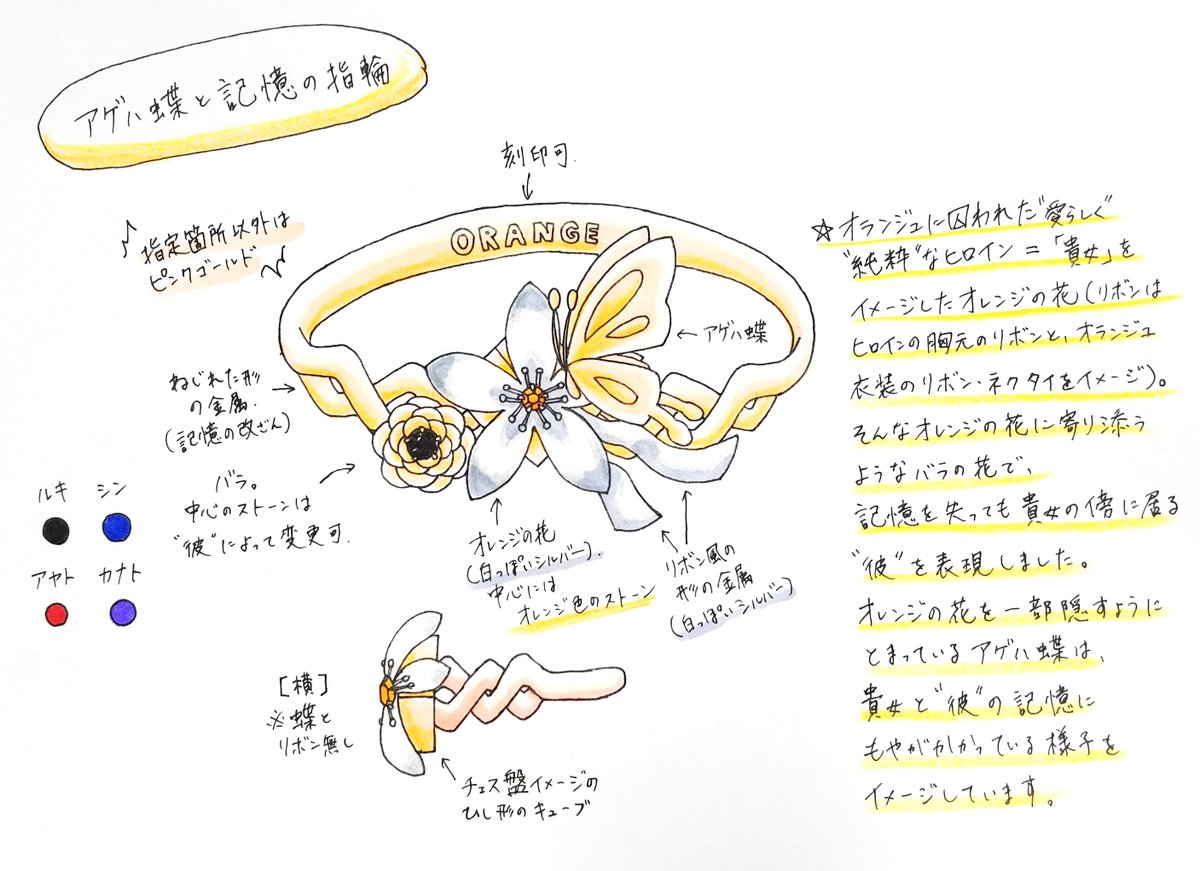 アゲハ蝶と記憶の指輪
刻印可.
指定箇所以外は
ピンクゴールド
ORANGE
←アゲハ蝶
ねじれた形
の金属.
(記憶の改ざん)
バラ。
中心のストーンは
"彼"によって変更可.
ルキ シン
アヤト カナト
オレンジの花
(白っぽいシルバー).
中心には
オレンジ色のストーン
リボン風の
形の金属
(白っぽいシルバー)
[横]
※蝶と
リボン無し
チェス盤イメージの
ひし形のキューブ
☆オランジュに囚われた"愛らしく"
"純粋"なヒロイン=「貴女」を
イメージしたオレンジの花(リボンは
ヒロインの胸元のリボンと、オランジュ
衣装のリボン・ネクタイをイメージ)。
そんなオレンジの花に寄り添う
ようなバラの花で、
記憶を失っても貴女の傍に居る
"彼"を表現しました。
オレンジの花を一部隠すように
とまっているアゲハ蝶は、
貴女と"彼"の記憶に
もやがかかっている様子を
イメージしています。